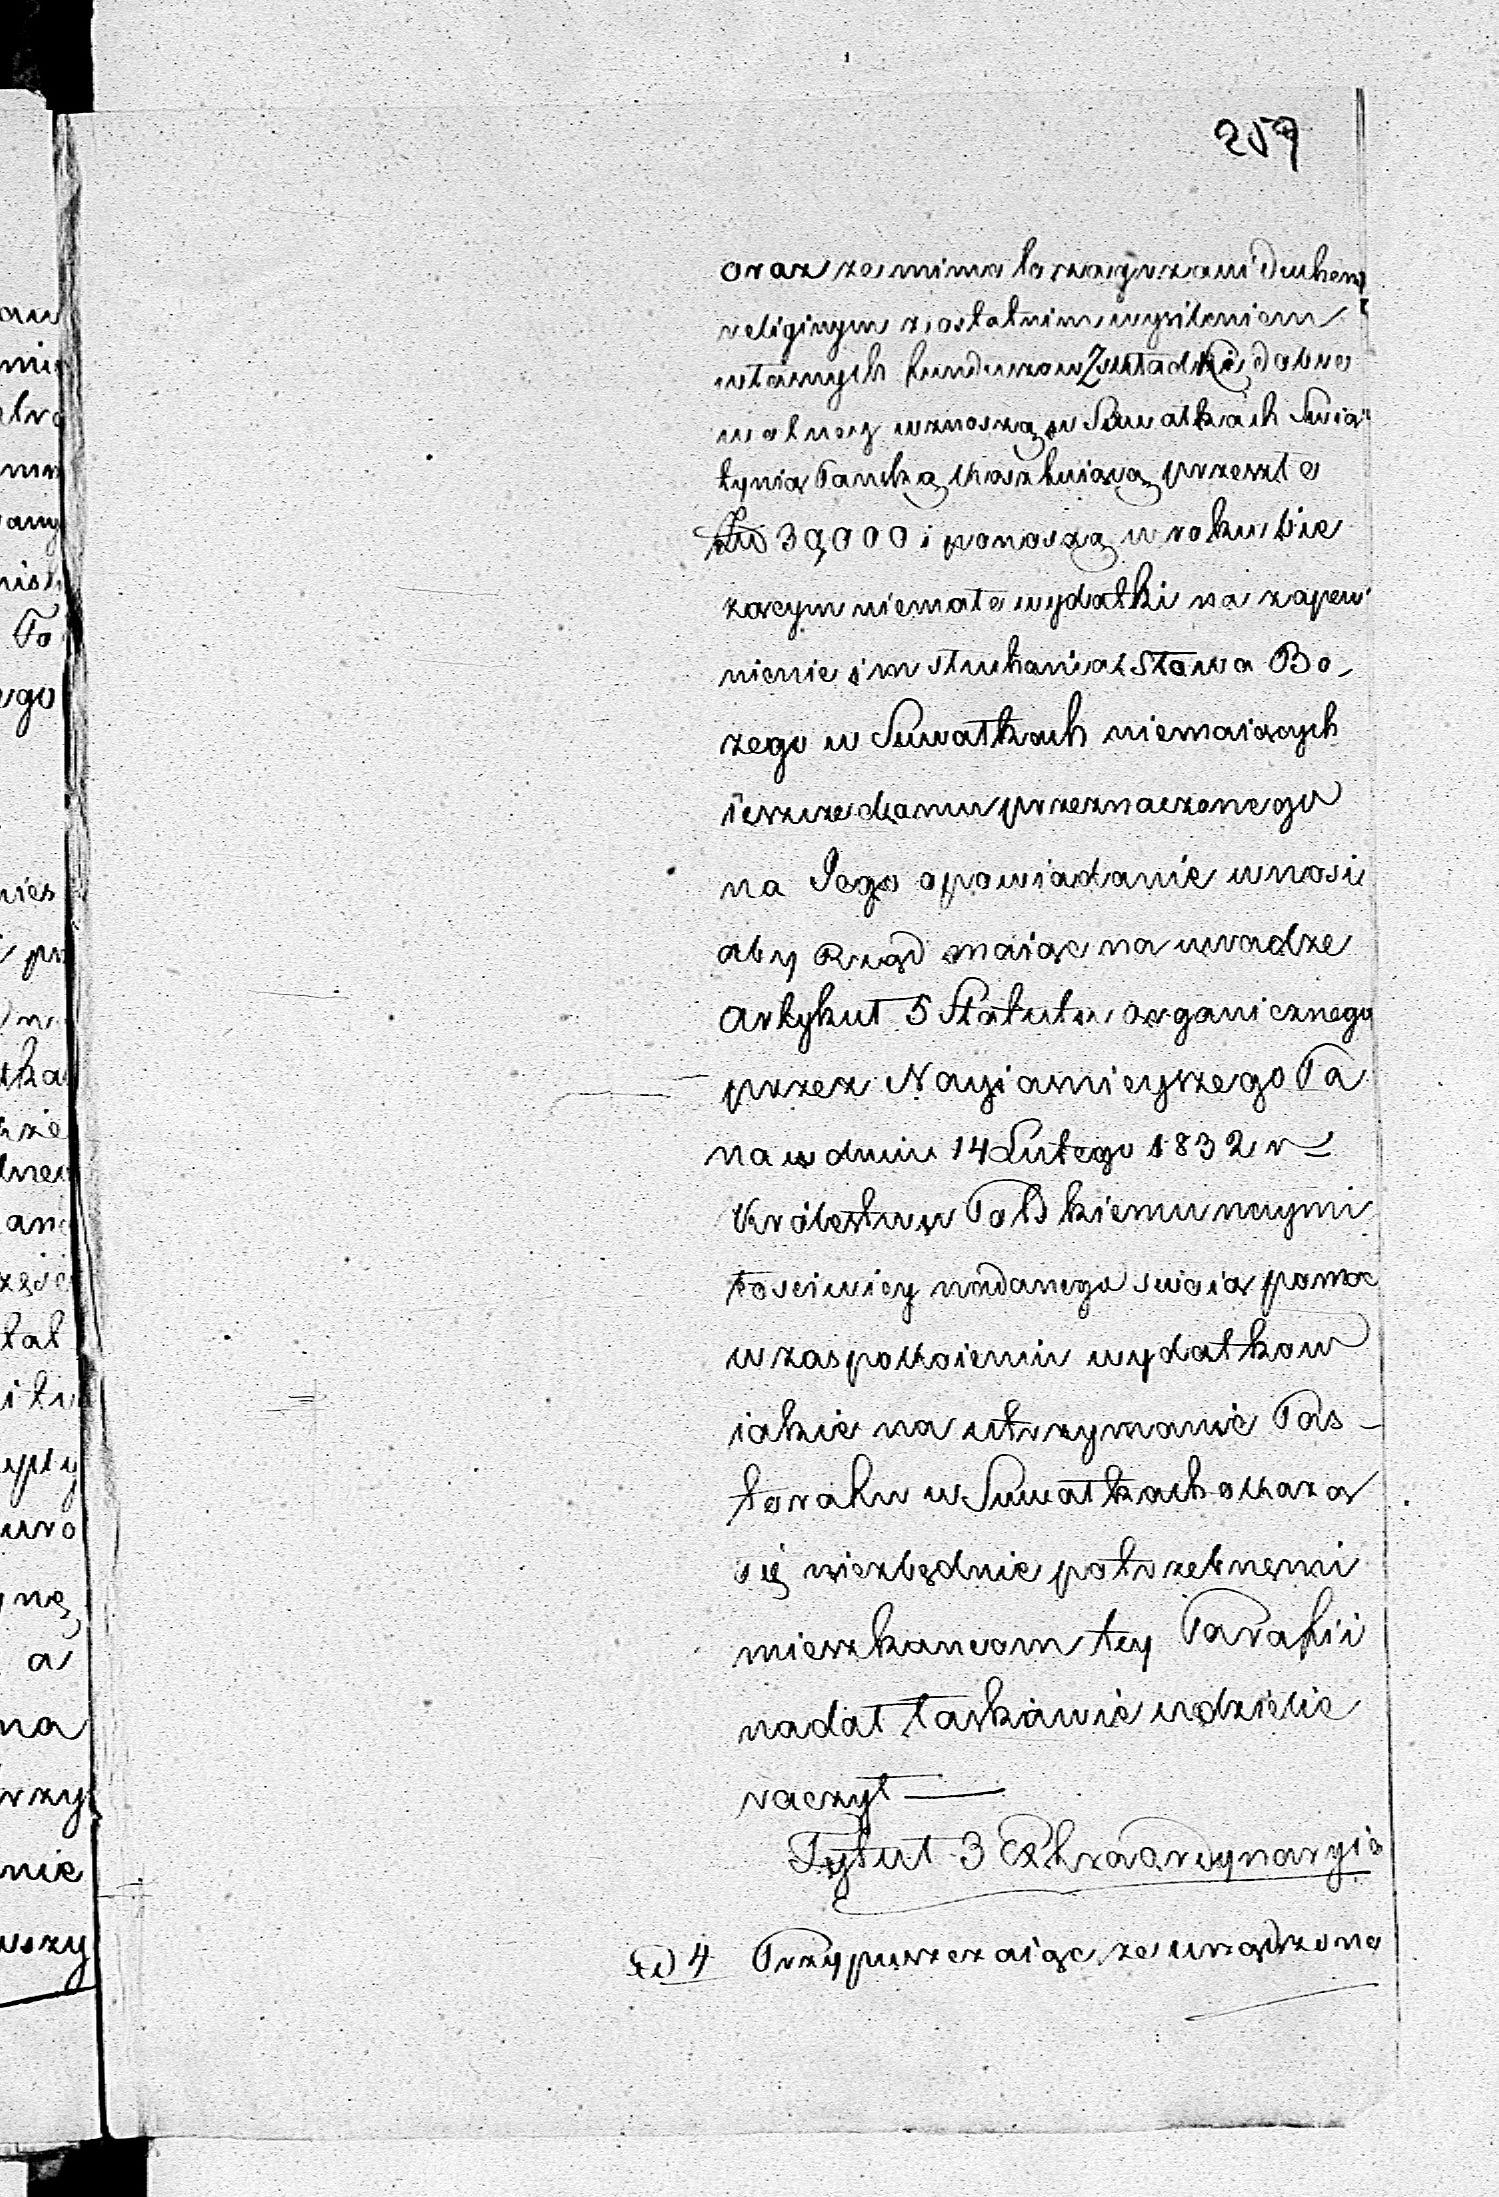 259
oraz ze mimo to zagrzani Duchem
religinym z ostatnim wysileniem
własnych funduszow Zskładki dobro
wolney wznoszą w Suwałkach Swią
tynią Pańską kosztuiącą przeszło
złp 30,000 i ponoszą w roku bie
zącym niemałe wydatki na zapew
nienie im słuchania Słowa Bo-
zego w Suwałkach niemaiących
ieszcze domu przeznaczonego
na Jego opowiadanie wnosi
aby Rząd maiąc na uwadze
artykuł 5 Statutu organicznego
przez Nayiasnieyszego Pa
na w dniu 14 Lutego 1832 r
Królestwu Polskiemu naymi
łosciwiey nadanego swoią pomoc
w zaspokoieniu wydatkow
iakie na utrzymanie Pas-
toratu w Suwałkach okazą
się niezbędnie potrzebnemi
mieszkancom tey Parafii
nadal łaskawie udzielic
raczył —
Tytuł 3 Extraordynaryia
ad 4 Przypuszczaiąc ze urządzone